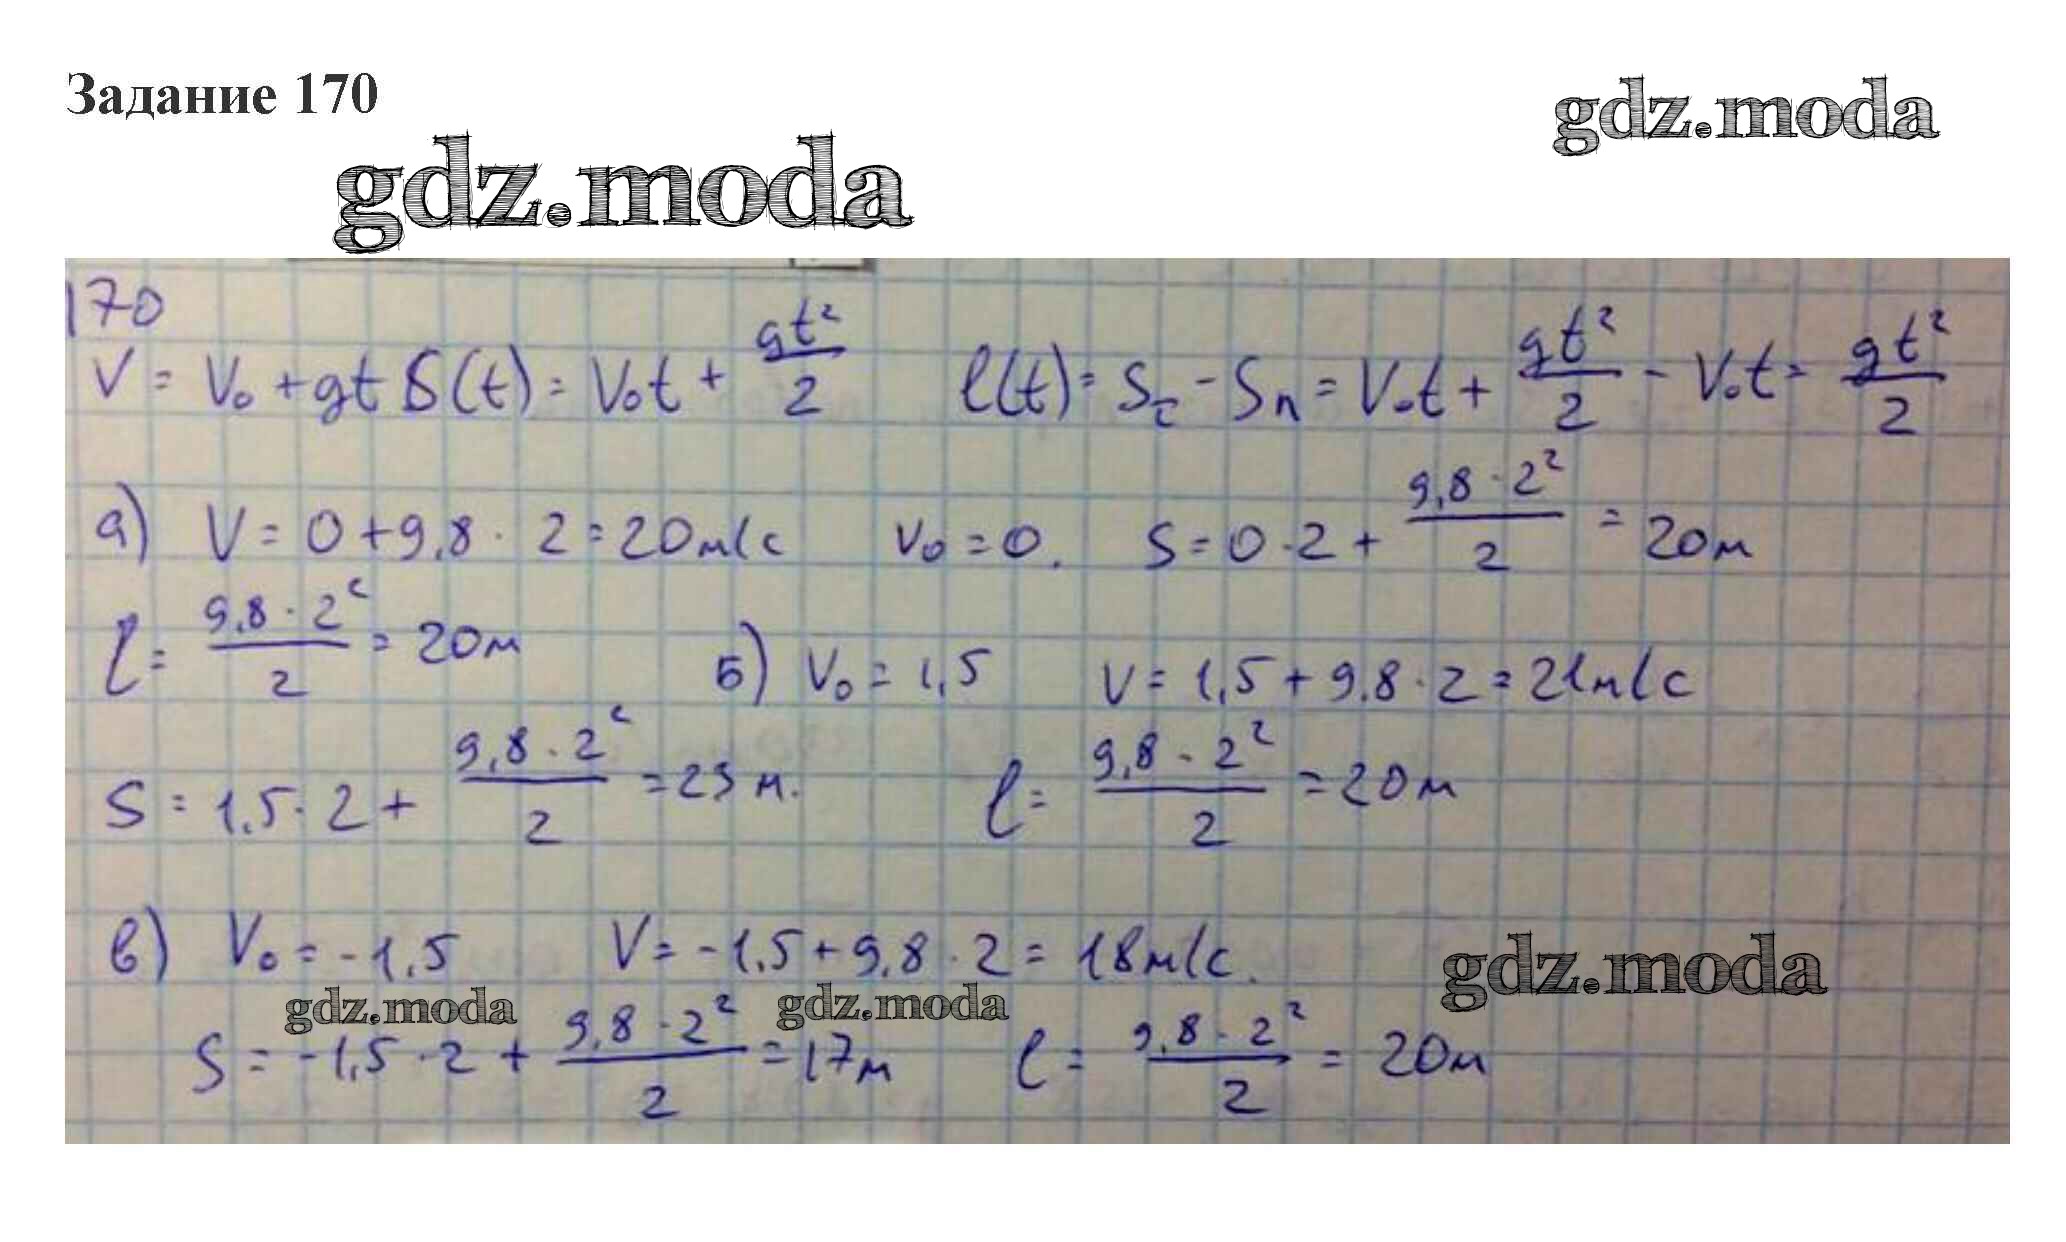 Задание 170
gdz.moda
gdz.moda
170
V = V₀ + gt S(t) = V₀t + gt²/2 l(t) = Sс - Sп = V₀t + gt²/2 - V₀t = gt²/2
а) V = 0 + 9,8 · 2 = 20м/с V₀ = 0. S = 0 · 2 + 9,8 · 2²/2 = 20м
l = 9,8 · 2²/2 = 20м б) V₀ = 1,5 V = 1,5 + 9,8 · 2 = 21м/с
S = 1,5 · 2 + 9,8 · 2²/2 = 23м. l = 9,8 · 2²/2 = 20м
в) V₀ = -1,5 V = -1,5 + 9,8 · 2 = 18м/с.
gdz.moda
gdz.moda
gdz.moda
S = -1,5 · 2 + 9,8 · 2²/2 = 17м l = 9,8 · 2²/2 = 20м